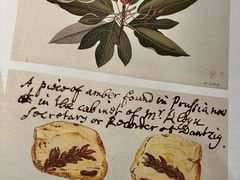 A piece of amber found in Prussia now
in the cabinet of Mr. Klein
Secretary or Recorder of Dantzig.